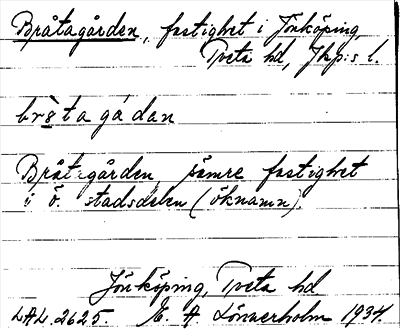 Bråtagården, fastighet i Jönköping,
Tveta hd, Jkp:s l.
bråtagådan
Bråtagården, sämre fastighet
i ö. stadsdelen (öknamn).
Jönköping, Tveta hd
LAL. 2625. E. A. Lönnerholm 1934.